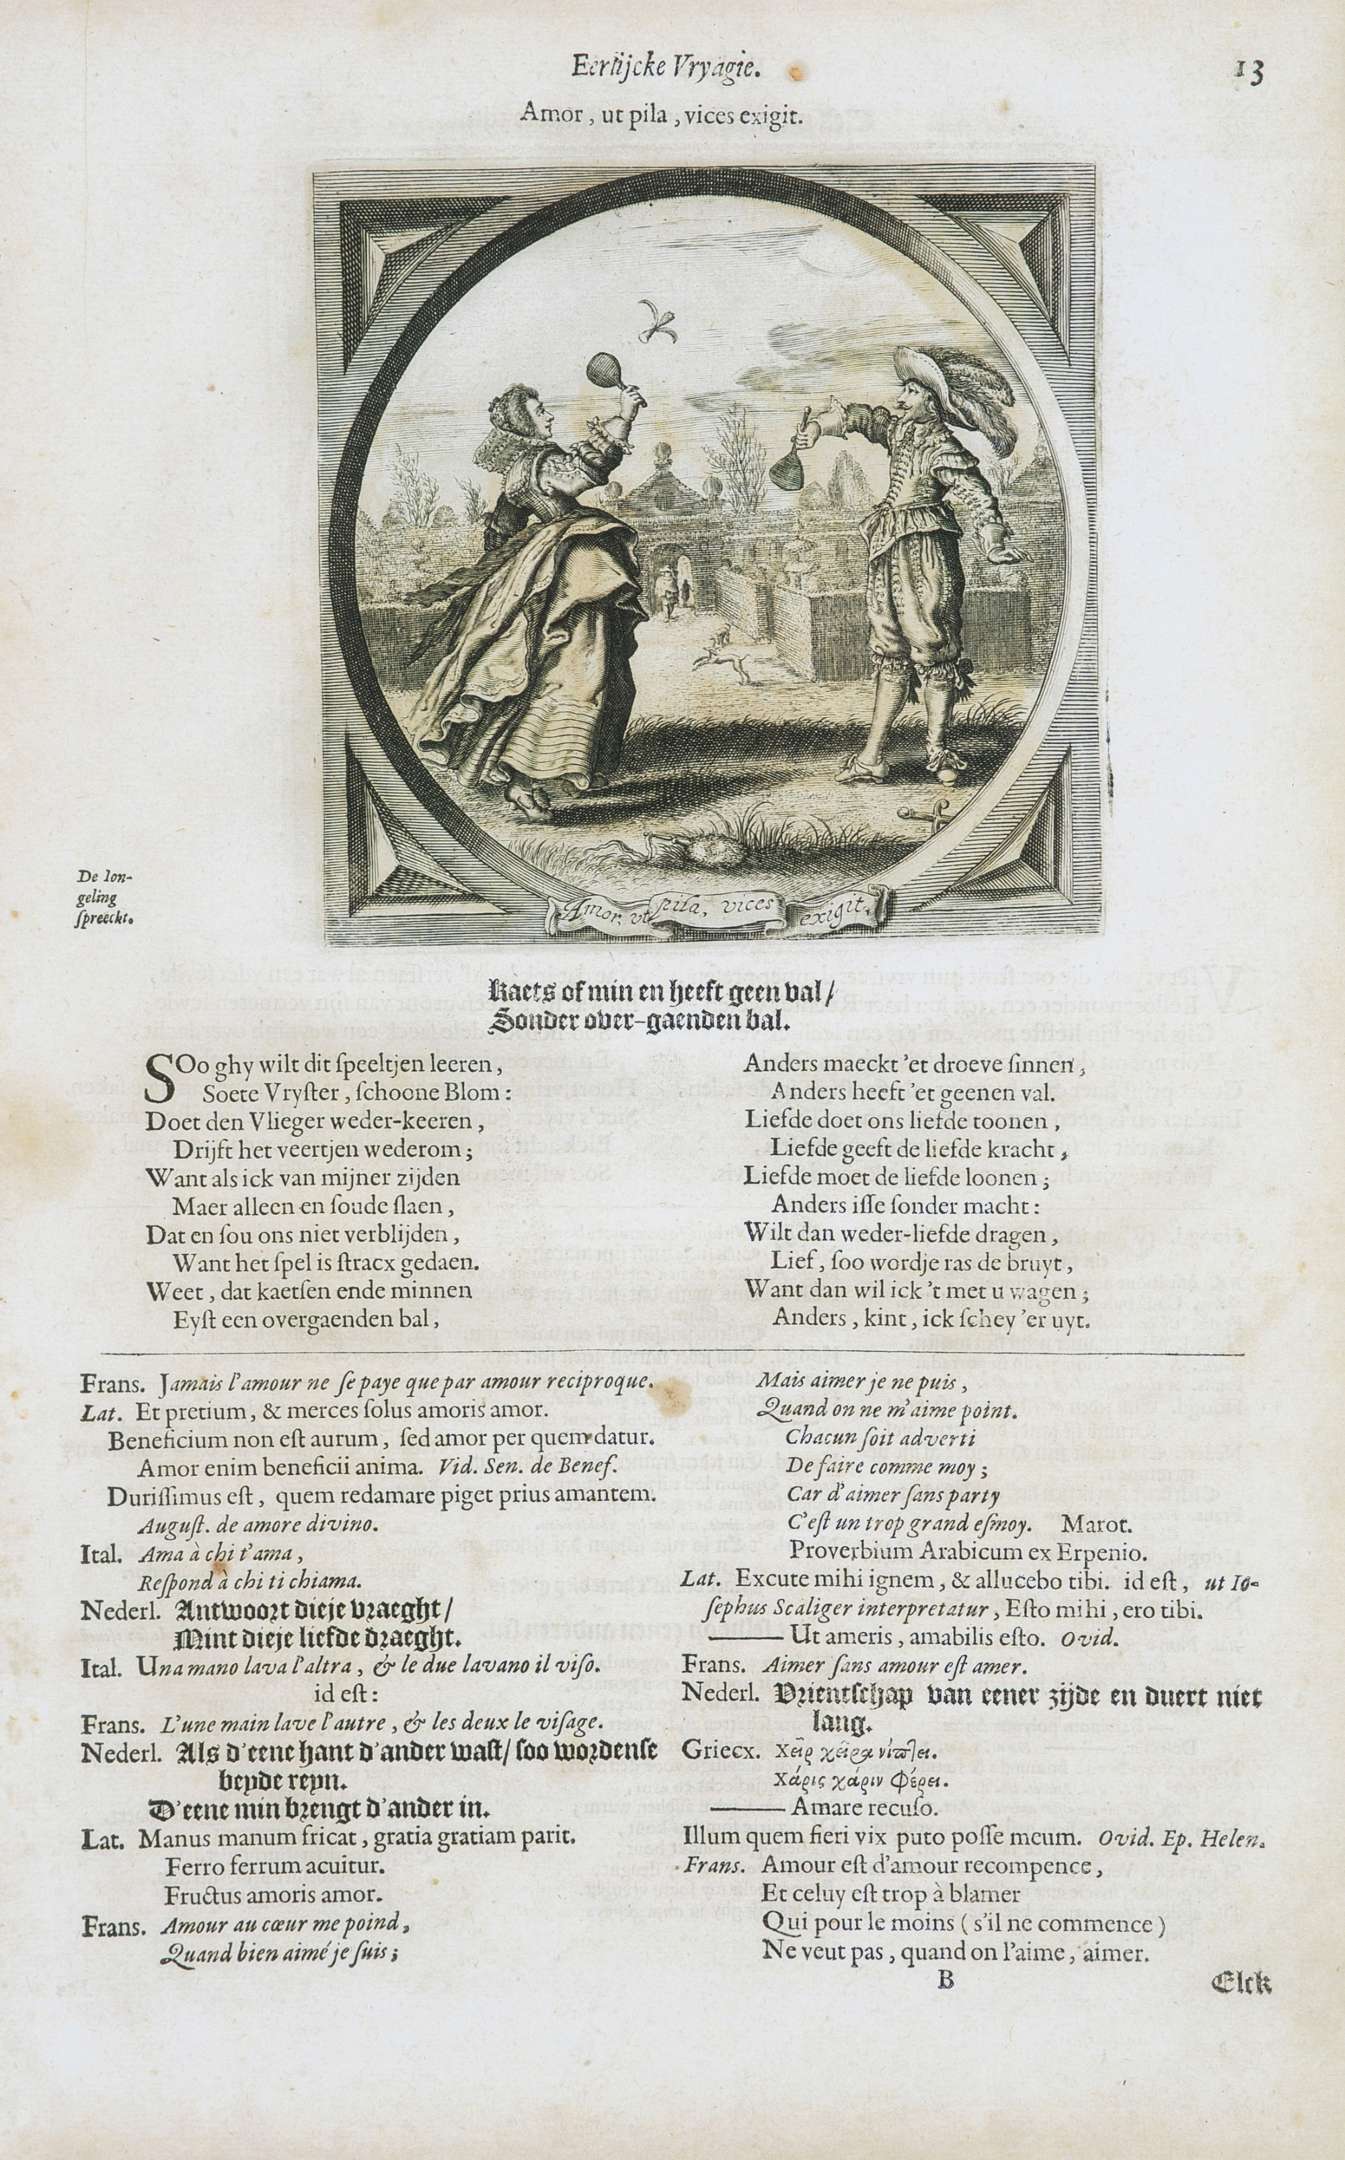 Eerlijcke Vryagie.
13
Amor, ut pila, vices exigit.
Amor, ut pila, vices exigit.
De Ion-
geling
ſpreeckt.
Kaets of min en heeft geen val/
Sonder over-gaenden bal.
SOo ghy wilt dit ſpeeltjen leeren,
Soete Vryſter, ſchoone Blom:
Doet den Vlieger weder-keeren,
Drijft het veertjen wederom;
Want als ick van mijner zijden
Maer alleen en ſoude ſlaen,
Dat en ſou ons niet verblijden,
Want het ſpel is ſtracx gedaen.
Weet, dat kaetſen ende minnen
Eyſt een overgaenden bal,
Anders maeckt 'et droeve ſinnen,
Anders heeft 'et geenen val.
Liefde doet ons liefde toonen,
Liefde geeft de liefde kracht,
Liefde moet de liefde loonen;
Anders iſſe ſonder macht:
Wilt dan weder-liefde dragen,
Lief, ſoo wordje ras de bruyt,
Want dan wil ick 't met u wagen;
Anders, kint, ick ſchey 'er uyt.
Frans. Jamais l'amour ne ſe paye que par amour reciproque.
Lat. Et pretium, & merces ſolus amoris amor.
Beneficium non eſt aurum, ſed amor per quem datur.
Amor enim beneficii anima. Vid. Sen. de Benef.
Duriſſimus eſt, quem redamare piget prius amantem.
Auguſt. de amore divino.
Ital. Ama à chi t'ama,
Reſpond à chi ti chiama.
Nederl. Antwoort dieje vraeght/
Mint dieje liefde draeght.
Ital. Una mano lava l'altra, & le due lavano il viſo.
id eſt:
Frans. L'une main lave l'autre, & les deux le viſage.
Nederl. Als d'eene hant d'ander waſt/ ſoo wordenſe
beyde reyn.
D'eene min brengt d'ander in.
Lat. Manus manum fricat, gratia gratiam parit.
Ferro ferrum acuitur.
Fructus amoris amor.
Frans. Amour au cœur me poind,
Quand bien aimé je ſuis;
Mais aimer je ne puis,
Quand on ne m'aime point.
Chacun ſoit adverti
De faire comme moy;
Car d'aimer ſans party
C'eſt un trop grand eſmoy. Marot.
Proverbium Arabicum ex Erpenio.
Lat. Excute mihi ignem, & allucebo tibi. id eſt, ut Io-
ſephus Scaliger interpretatur, Eſto mihi, ero tibi.
——— Ut ameris, amabilis eſto. Ovid.
Frans. Aimer ſans amour eſt amer.
Nederl. Vrientſchap van eener zijde en duert niet
lang.
Griecx. Χεὶρ χεῖρα νίπτει.
Χάρις χάριν φέρει.
——— Amare recuſo.
Illum quem fieri vix puto poſſe meum. Ovid. Ep. Helen.
Frans. Amour eſt d'amour recompence,
Et celuy eſt trop à blamer
Qui pour le moins (s'il ne commence)
Ne veut pas, quand on l'aime, aimer.
B
Elck